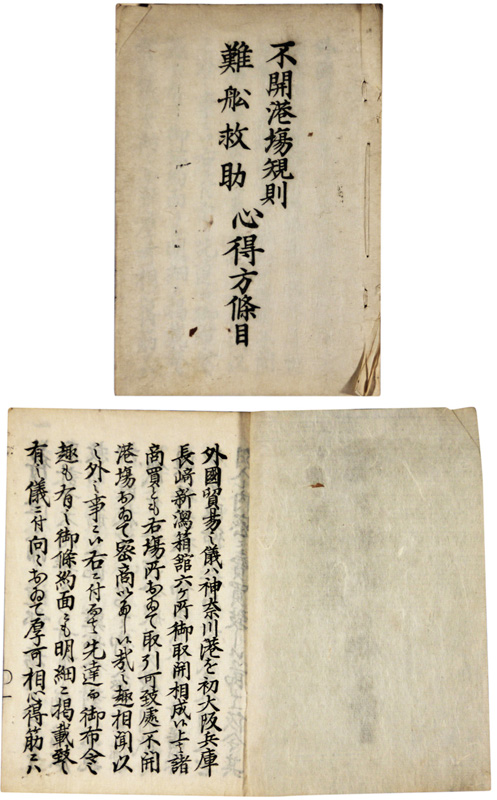 不開港塲規則
難舩救助
心得方條目
外國貿易之儀ハ神奈川港を初大阪兵庫
長﨑新潟箱舘六ケ所御取開相成候上者諸
商買とも右塲所おゐて取引可致處不開
港塲おゐて密商いたし候哉之趣相聞以
之外之事ニ候右ニ付而者先達而御布令之
趣も有之御條約面ニも明細ニ掲載致し
有之儀ニ付向々おゐて厚可相心得筋ニハ